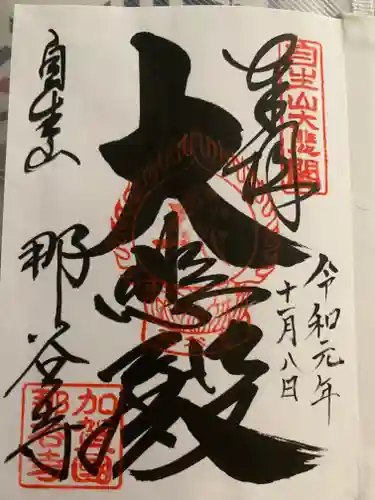 奉拝
自生山大悲閣
令和元年
十一月八日
大悲殿
自生山
那谷寺
加賀國
那谷寺